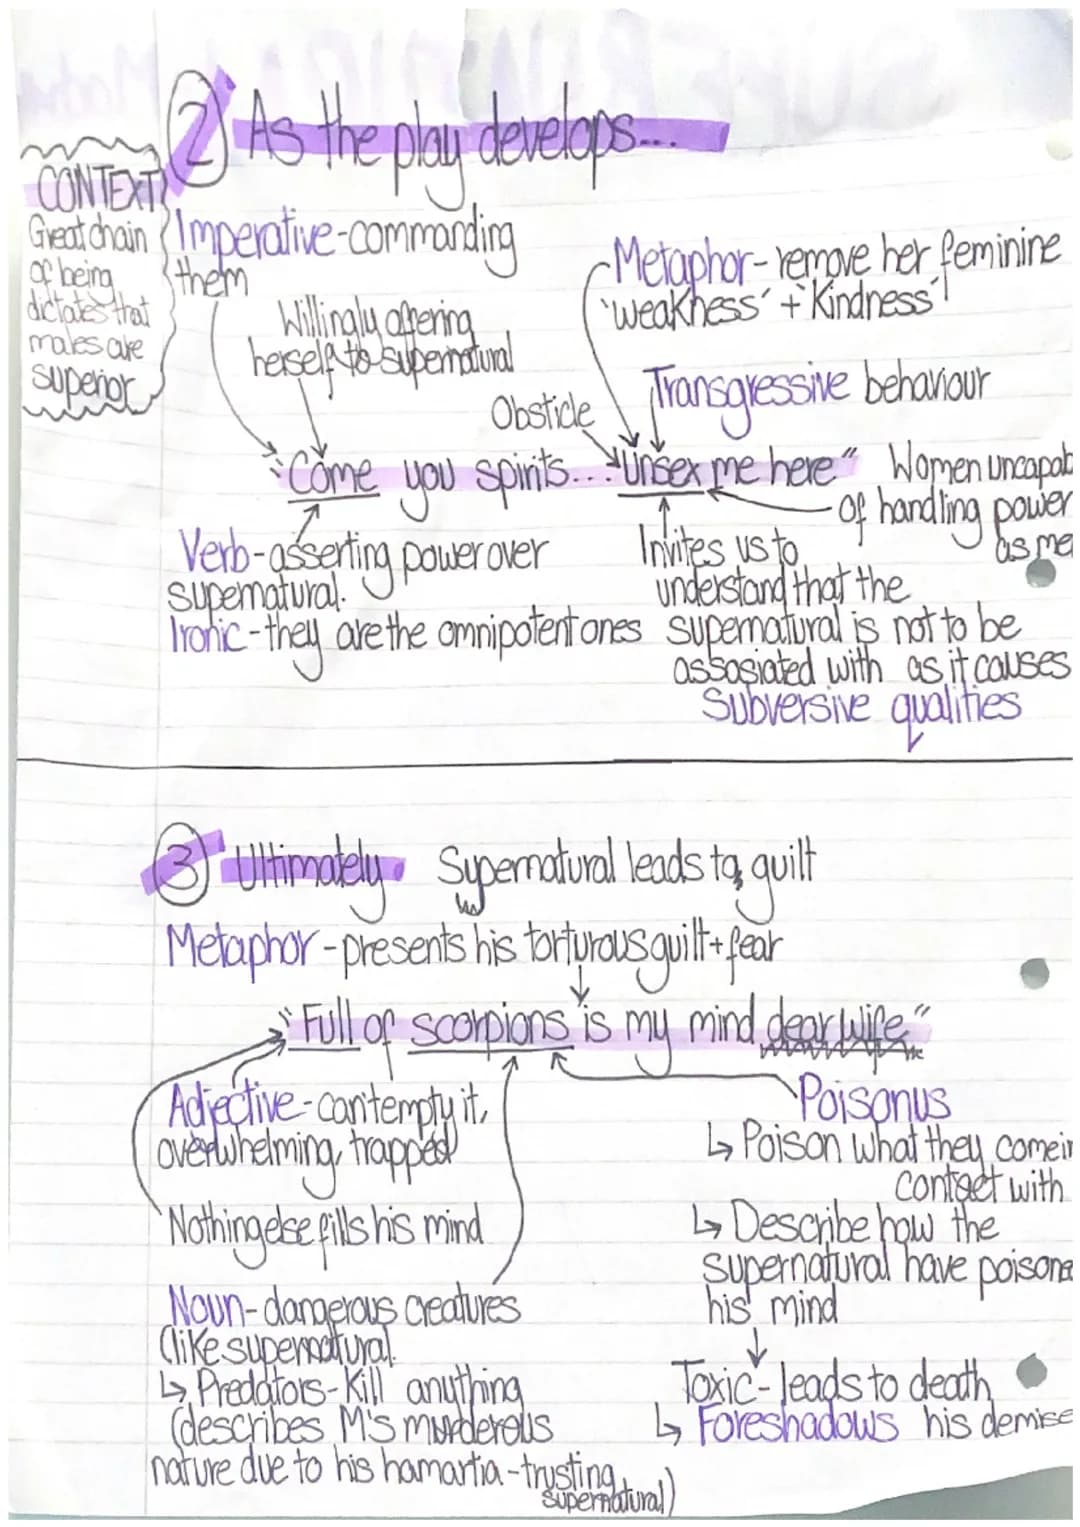 ② As the play develops...
CONTEXT
Great chain
of being
dictates that
males are
superior
Imperative-commanding
them
Willingly offering
herself to supernatural
Metaphor- remove her feminine
'weakness' + 'Kindness'
Transgressive behaviour
Obsticle
"Come you spirits... Unsex me here"
Women uncapab
of handling power
as me
Verb-asserting power over
supernatural.
Ironic-they are the omnipotent ones
Invites us to
understand that the
supernatural is not to be
assosiated with as it causes
Subversive qualities
③ Ultimately Supernatural leads to guilt
Metaphor-presents his torturous guilt + fear
"Full of scorpions is my mind dear wife"
Adjective-can't empty it,
overwhelming, trapped
Nothing else fills his mind
Noun-dangerous creatures
(like supernatural.
↳ Predators-Kill anything
(describes M's murderous
nature due to his hamartia-trusting
supernatural)
Poisonus
↳ Poison what they come in
contact with
↳ Describe how the
supernatural have poisone
his mind
Toxic-leads to death
↳ Foreshadows his demise